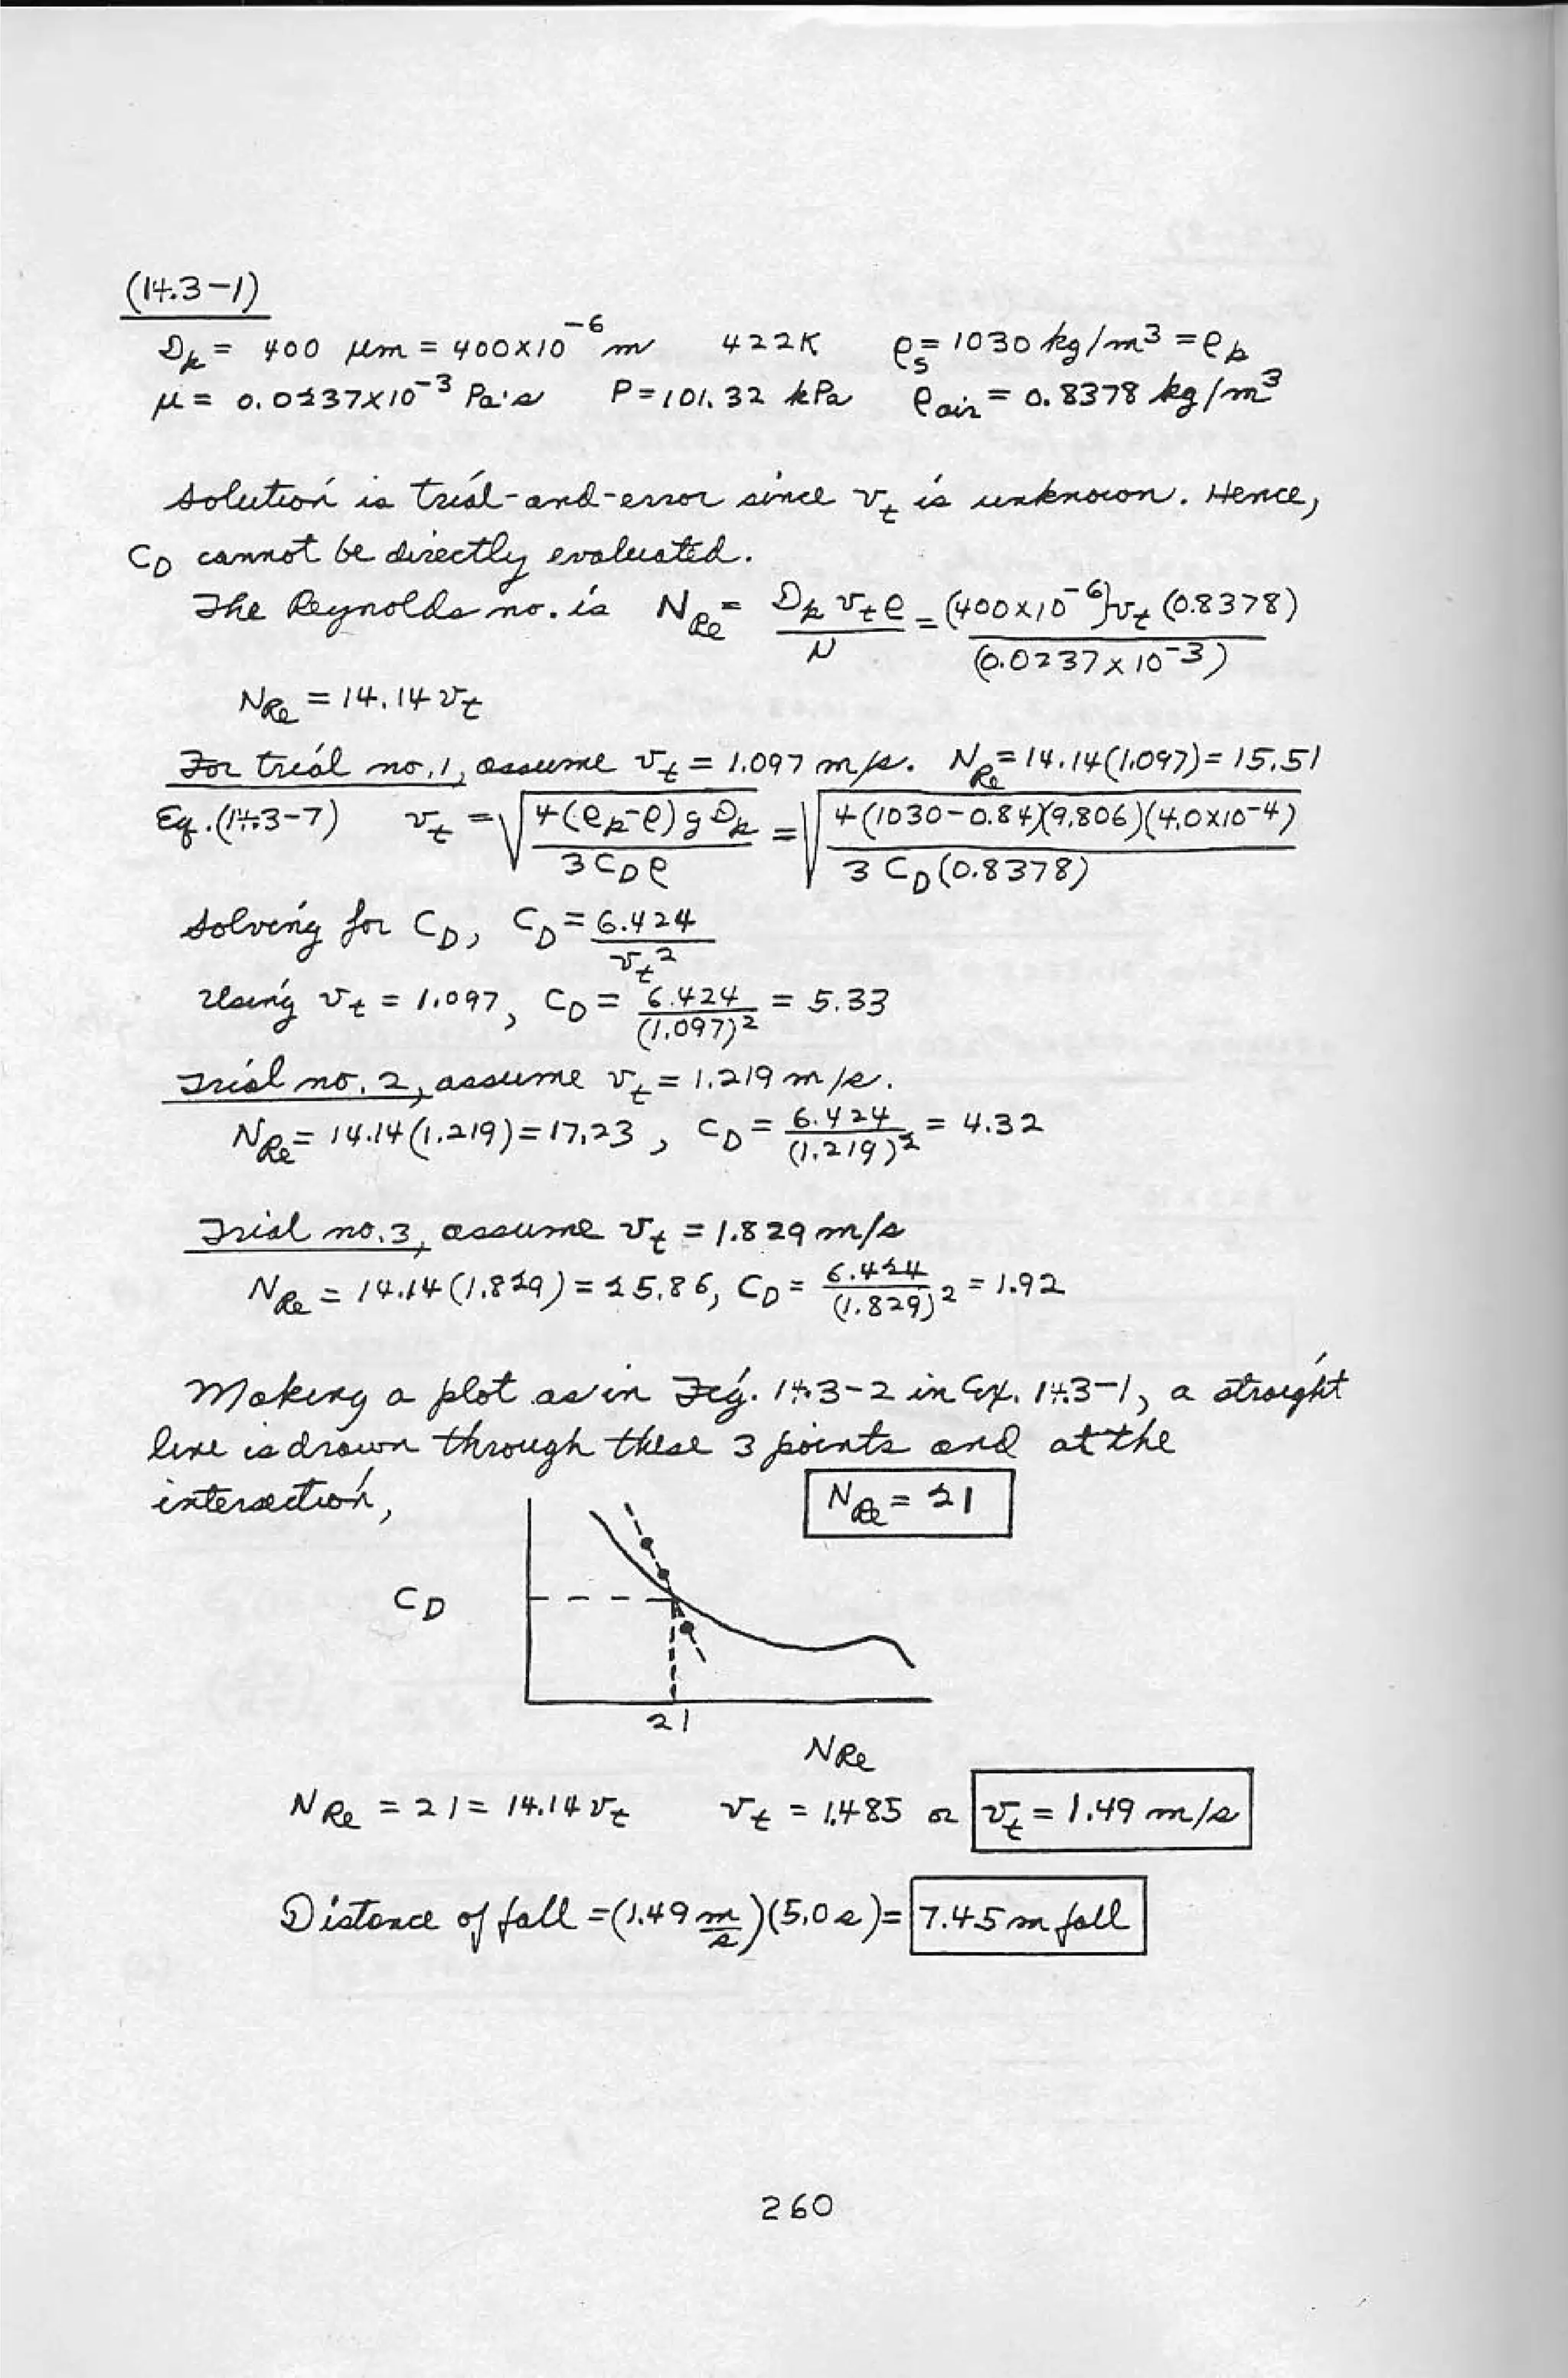 (14.3-1)
Dp = 400 μm = 400×10⁻⁶ m 422K ρs = 1030 kg/m³ = ρp
μ = 0.0237×10⁻³ Pa·s P = 101.32 kPa ρair = 0.8378 kg/m³
Solution is trial-and-error since vt is unknown. Hence,
CD cannot be directly evaluated.
The Reynolds no. is NRe = Dp vt ρ / μ = (400×10⁻⁶)vt (0.8378) / (0.0237×10⁻³)
NRe = 14.14 vt
For trial no. 1, assume vt = 1.097 m/s. NRe = 14.14(1.097) = 15.51
Eq. (14.3-7) vt = √(4(ρp-ρ) g Dp / 3 CD ρ) = √(4(1030-0.84)(9.806)(4.0×10⁻⁴) / 3 CD (0.8378))
Solving for CD, CD = 6.424 / vt²
Using vt = 1.097, CD = 6.424 / (1.097)² = 5.33
Trial no. 2, assume vt = 1.219 m/s.
NRe = 14.14(1.219) = 17.23, CD = 6.424 / (1.219)² = 4.32
Trial no. 3, assume vt = 1.829 m/s
NRe = 14.14(1.829) = 25.86, CD = 6.424 / (1.829)² = 1.92
Making a plot as in Fig. 14.3-2 in Ex. 14.3-1, a straight
line is drawn through these 3 points and at the
intersection, NRe = 21
CD
21
NRe
NRe = 21 = 14.14 vt vt = 1.485 or vt = 1.49 m/s
Distance of fall = (1.49 m/s)(5.0 s) = 7.45 m fall
260